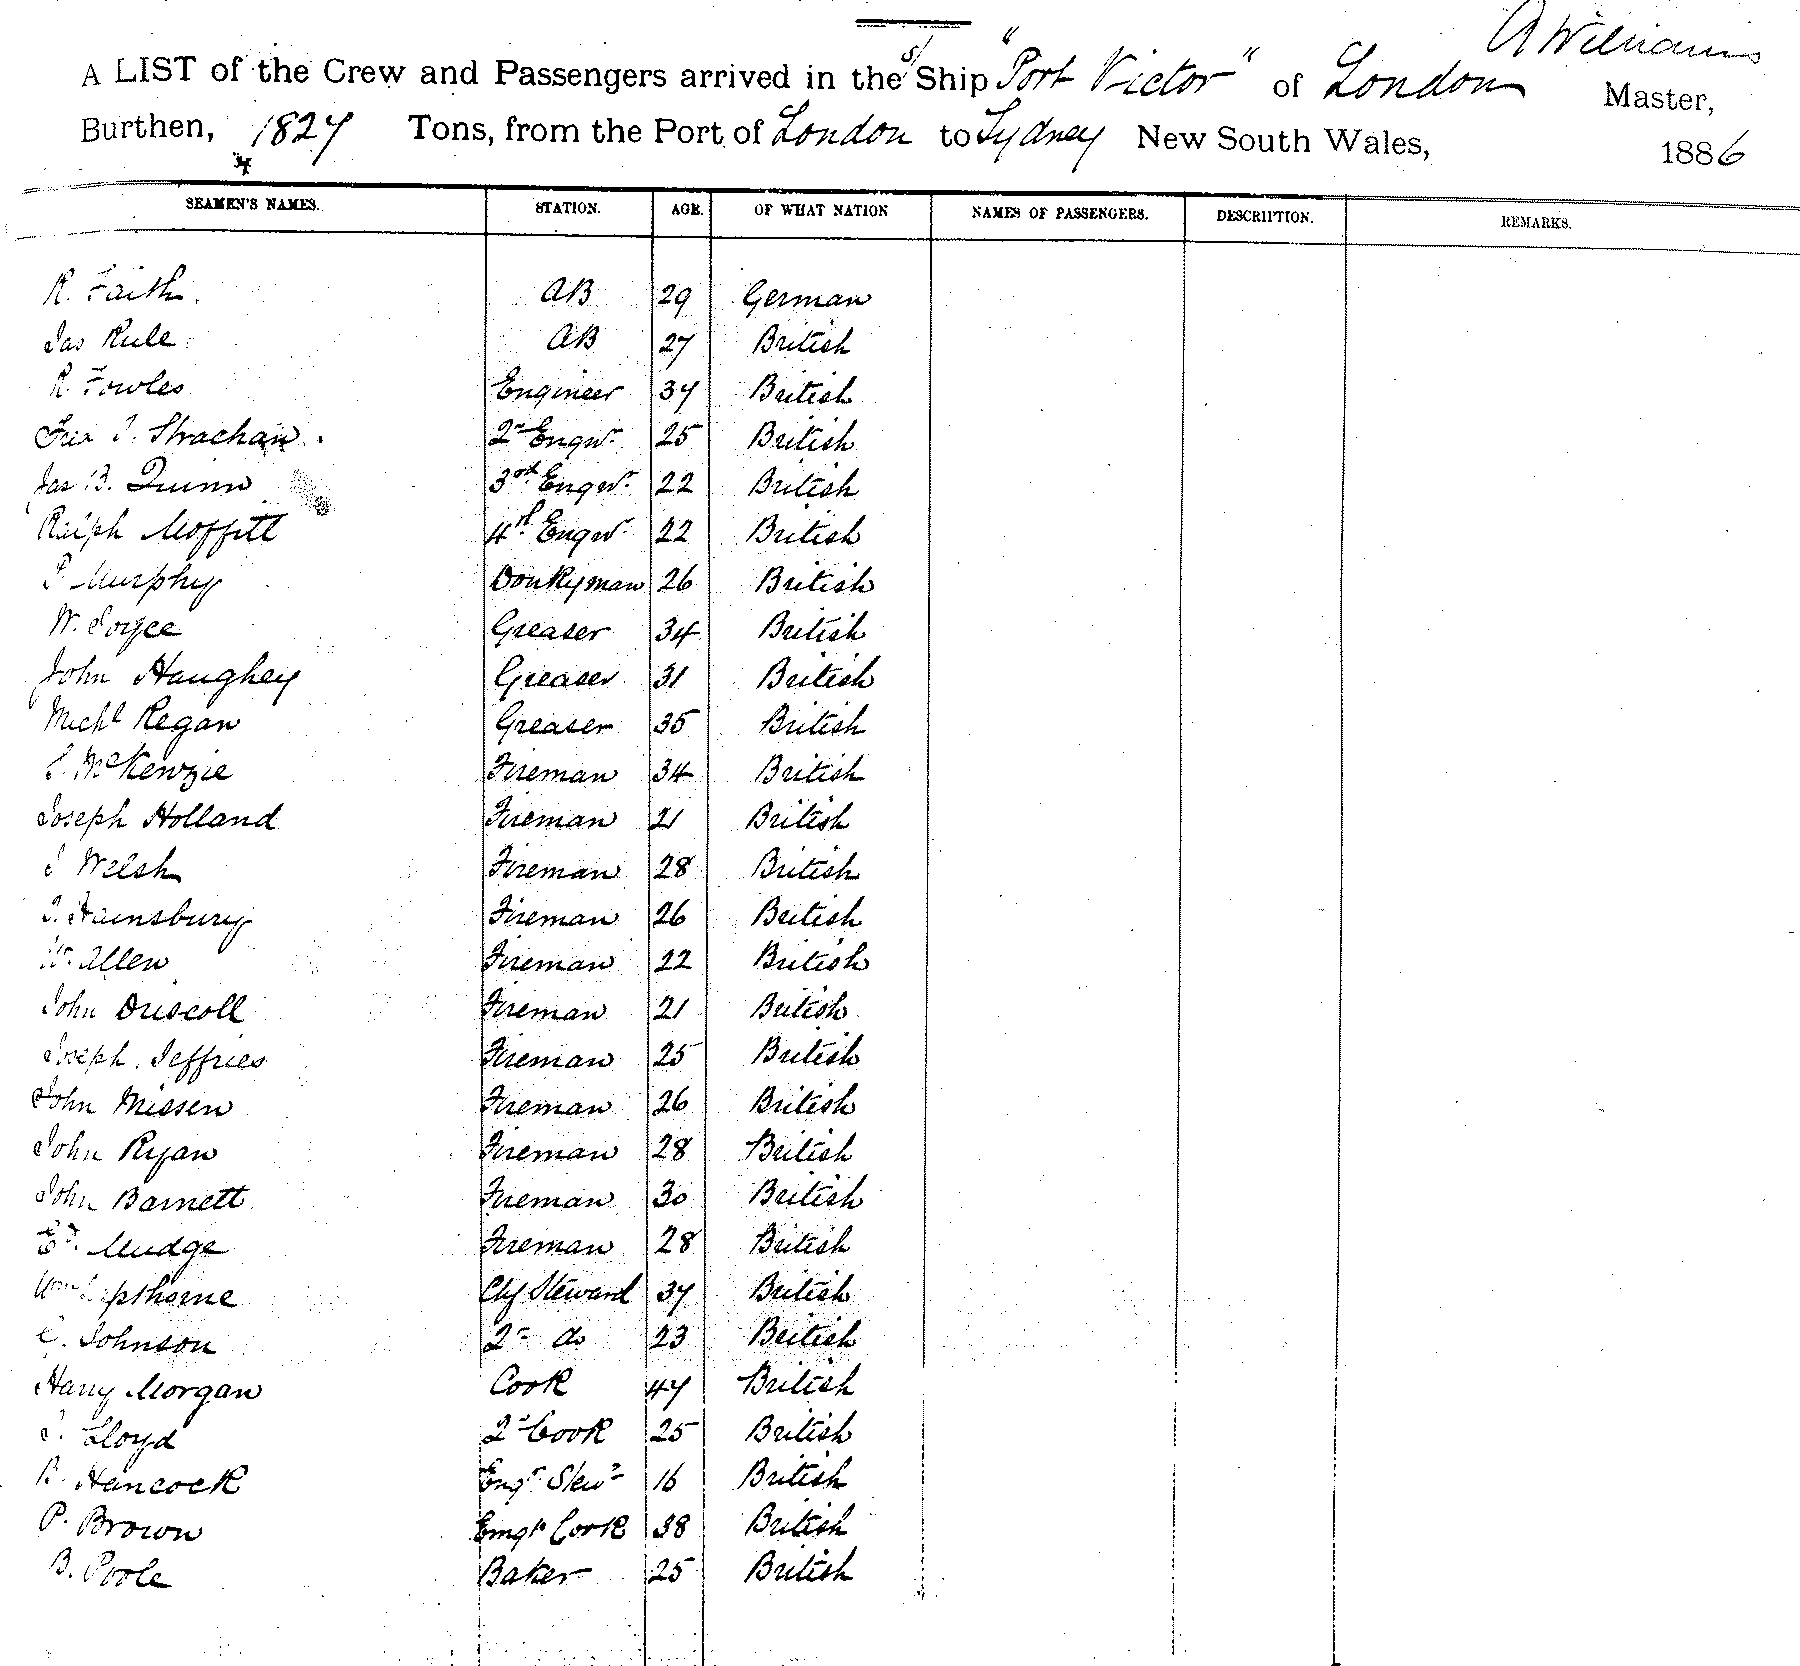 A Williams
A LIST of the Crew and Passengers arrived in the s/ Ship "Port Victor" of London Master,
Burthen, 1827 Tons, from the Port of London to Sydney New South Wales, 1886
SEAMEN'S NAMES. STATION. AGE. OF WHAT NATION NAMES OF PASSENGERS. DESCRIPTION. REMARKS.
R. Faith. AB 29 German
Jas Rule AB 27 British
R. Fowles Engineer 37 British
J. Strachan 2nd Engr. 25 British
Jas B. Quinn 3rd Engr. 22 British
Ralph Moffitt 4th Engr. 22 British
Murphy Donkyman 26 British
W. Joyce Greaser 34 British
John Haughey Greaser 31 British
Michl Regan Greaser 35 British
McKenzie Fireman 34 British
Joseph Holland Fireman 21 British
J Welsh Fireman 28 British
J. Hainsbury Fireman 26 British
Wm Allen Fireman 22 British
John Driscoll Fireman 21 British
Joseph Jeffries Fireman 25 British
John Missen Fireman 26 British
John Ryan Fireman 28 British
John Barnett Fireman 30 British
Ed. Mudge Fireman 28 British
Wm Lapthorne Chf Steward 37 British
C. Johnson 2nd do 23 British
Harry Morgan Cook 47 British
J. Lloyd 2nd Cook 25 British
R. Hancock Engr. Stewd 16 British
P. Brown Emgt Cook 38 British
B. Poole Baker 25 British